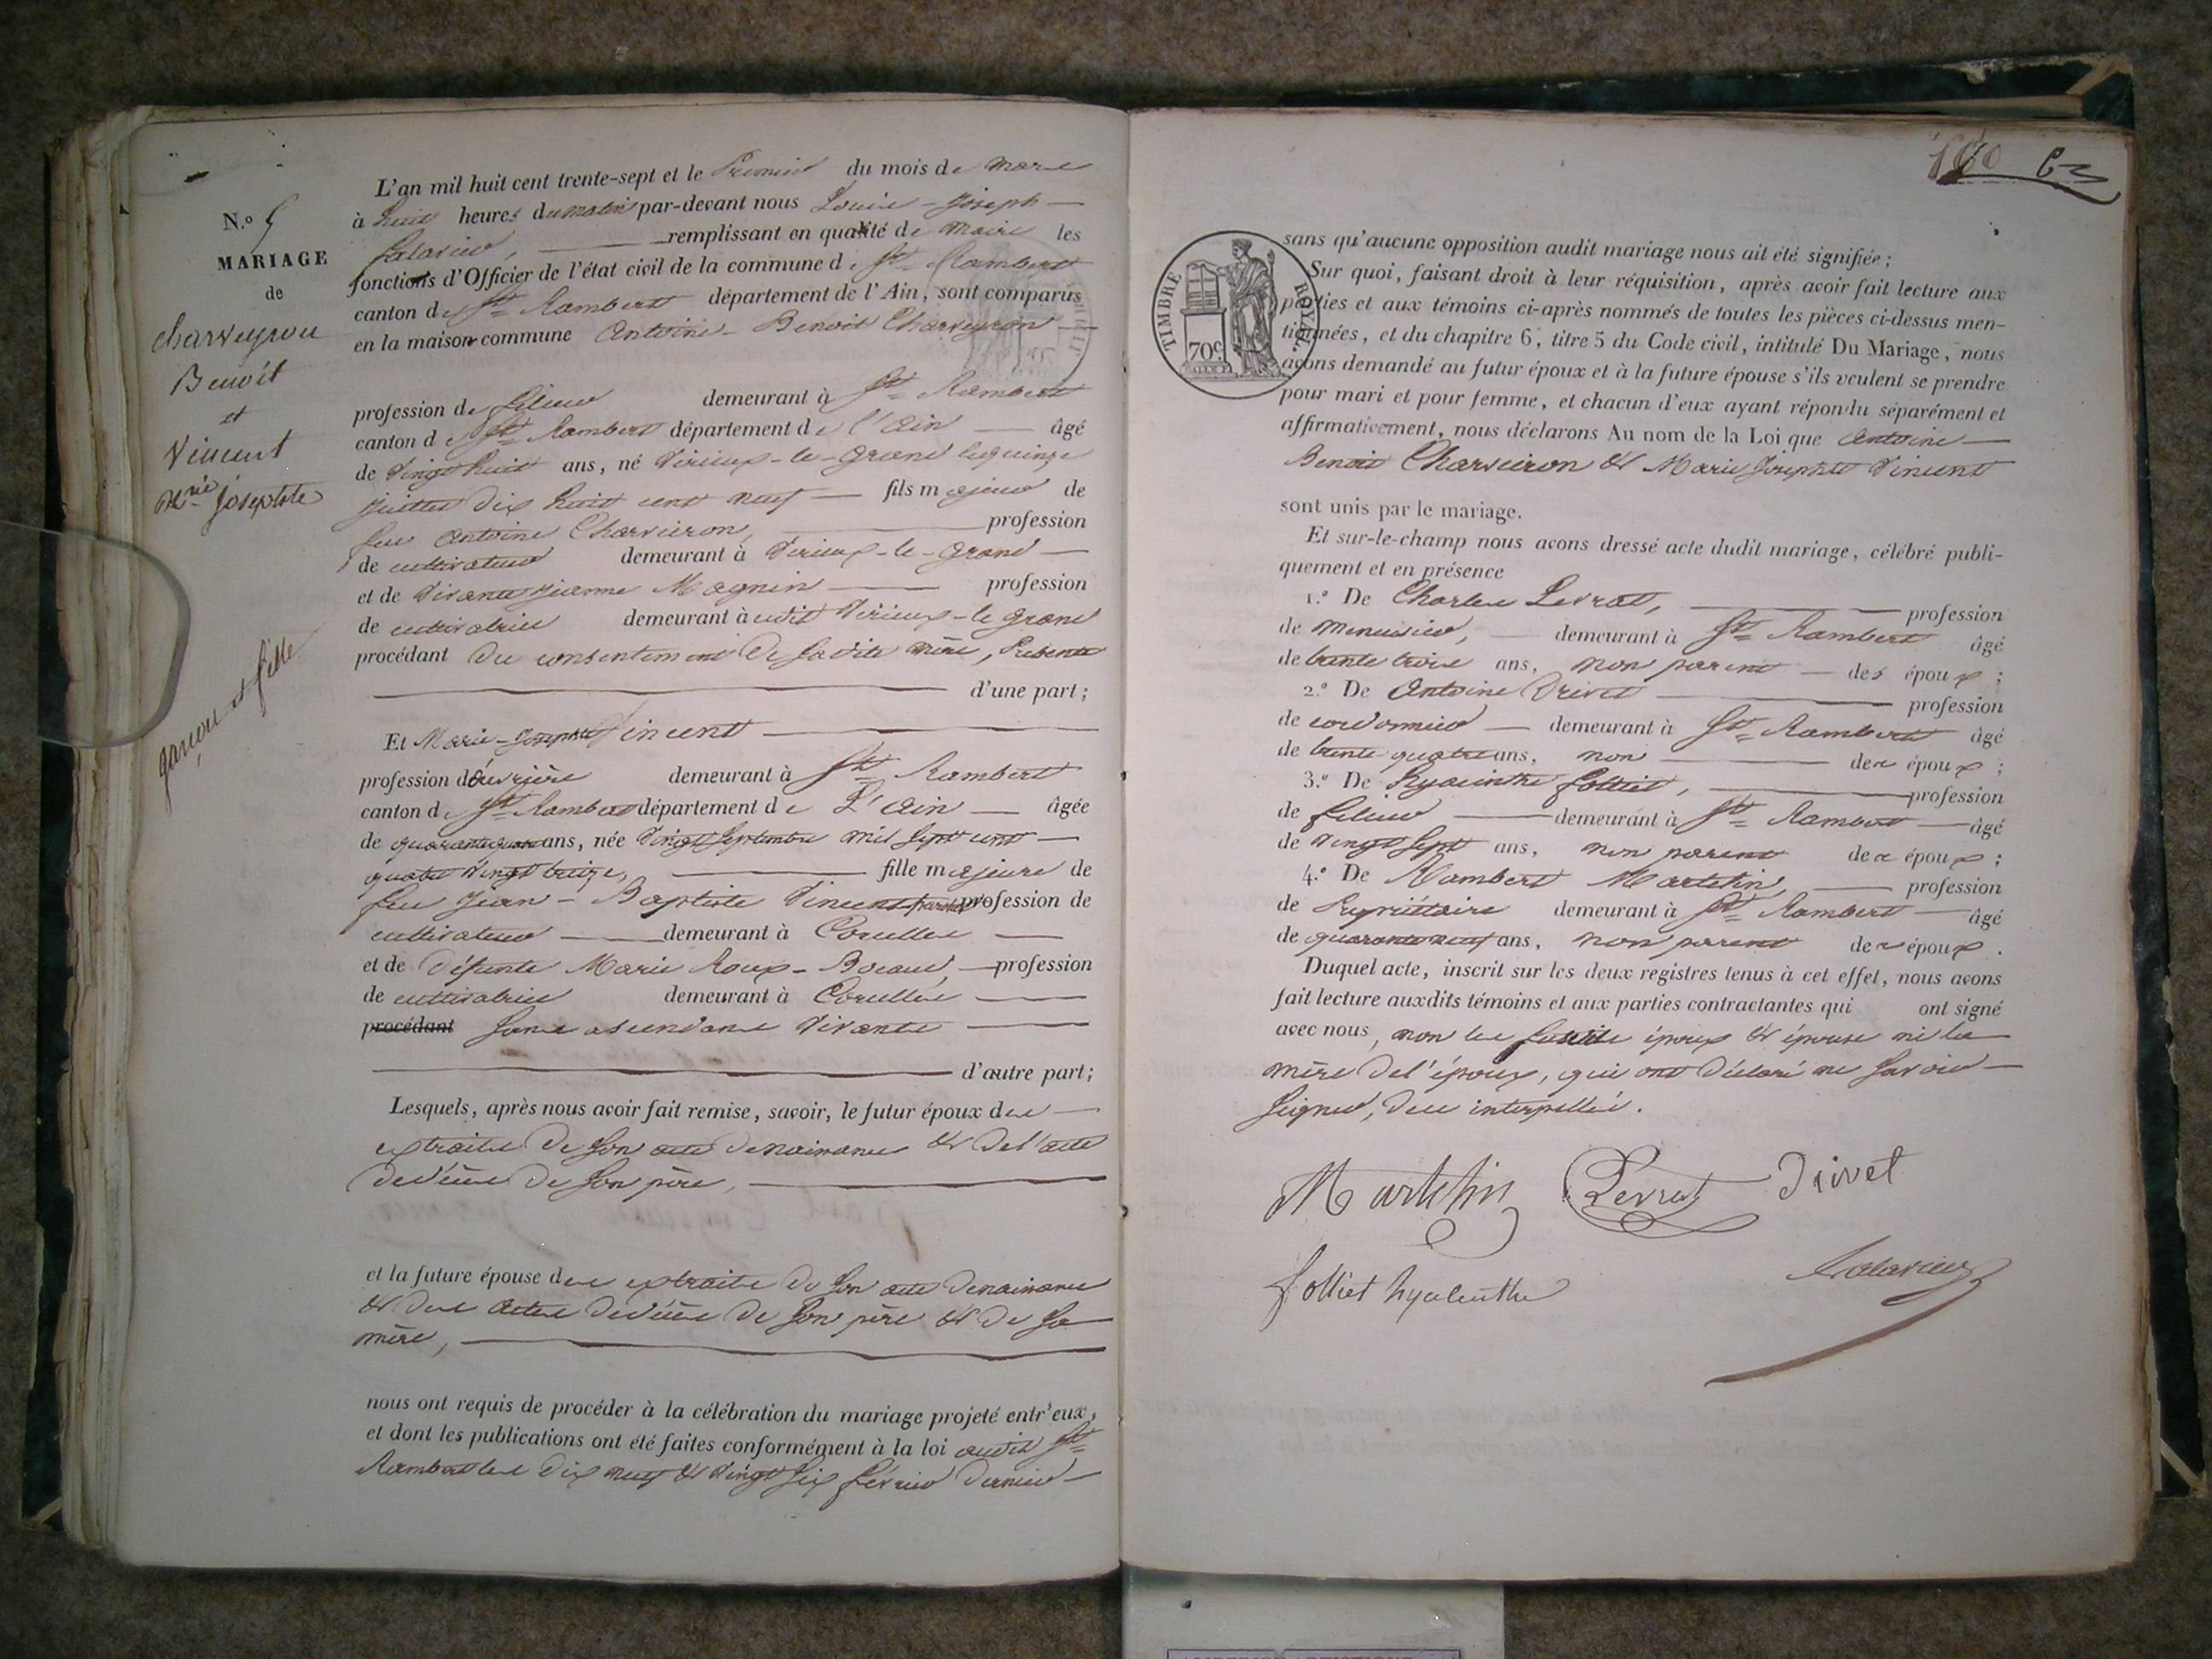 N.o 5
MARIAGE
de
Charveyron
Benoît
et
Vincent
Mrie Josephte
garçon et fille
L'an mil huit cent trente-sept et le Premier du mois de mars
à huit heures du matin par-devant nous Louis - Joseph
remplissant en qualité de maire les
fonctions d'Officier de l'état civil de la commune de St Rambert
canton de St Rambert département de l'Ain, sont comparus
en la maison commune Antoine - Benoit Charveyron
profession de fileur demeurant à St Rambert
canton de St Rambert département de l'Ain âgé
de vingt huit ans, né Virieux-le-grand le quinze
juillet dix huit cent neuf fils majeur de
feu Antoine Charveiron, profession
de cultivateur demeurant à Virieux-le-grand
et de vivante jeanne Magnin profession
de cultivatrice demeurant à audit Virieux-le-grand
procédant du consentement de sadite mère, présente
d'une part;
Et Marie-Josephte Vincent
profession d'ouvrière demeurant à St Rambert
canton de St Rambert département de L'Ain âgée
de ans, née vingt septembre mil sept cent
quatre vingt treize, fille majeure de
feu Jean - Baptiste Vincent profession de
cultivateur demeurant à Corcelles
et de défunte Marie Roux - profession
de cultivatrice demeurant à Corcelles
procédant sans ascendans vivants
d'autre part;
Lesquels, après nous avoir fait remise, savoir, le futur époux des
extraits de son acte de naissance & de l'acte
de décès de son père,
et la future épouse des extraits de son acte de naissance
& des actes de décès de son père & de sa
mère,
nous ont requis de procéder à la célébration du mariage projeté entr'eux,
et dont les publications ont été faites conformément à la loi audit St
Rambert les dix neuf & vingt six février dernier
TIMBRE ROYAL
70c
sans qu'aucune opposition audit mariage nous ait été signifiée;
Sur quoi, faisant droit à leur réquisition, après avoir fait lecture aux
parties et aux témoins ci-après nommés de toutes les pièces ci-dessus men-
tionnées, et du chapitre 6, titre 5 du Code civil, intitulé Du Mariage, nous
avons demandé au futur époux et à la future épouse s'ils veulent se prendre
pour mari et pour femme, et chacun d'eux ayant répondu séparément et
affirmativement, nous déclarons Au nom de la Loi que Antoine
Benoit Charveiron & Marie Josephte Vincent
sont unis par le mariage.
Et sur-le-champ nous avons dressé acte dudit mariage, célébré publi-
quement et en présence
1.o De Charles Levrat, profession
de menuisier, demeurant à St Rambert âgé
de trente trois ans, non parent des époux;
2.o De Antoine Drivet profession
de cordonnier demeurant à St Rambert âgé
de trente quatre ans, non des époux;
3.o De hyacinthe folliet, profession
de fileur demeurant à St Rambert âgé
de vingt sept ans, non parent des époux;
4.o De Rambert Martelin, profession
de Propriétaire demeurant à St Rambert âgé
de quarante neuf ans, non parent des époux.
Duquel acte, inscrit sur les deux registres tenus à cet effet, nous avons
fait lecture auxdits témoins et aux parties contractantes qui ont signé
avec nous, non les susdits époux & épouse ni la
mère de l'époux, qui ont déclaré ne savoir
signer, de ce interpellés.
Martelin Levrat Drivet
folliet hyacinthe